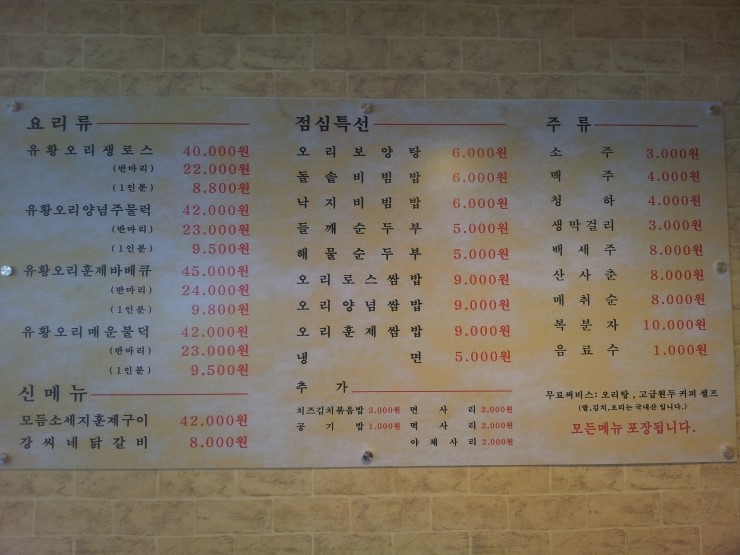 요리류
유황오리생로스 40.000원
(반마리) 22.000원
(1인분) 8.800원
유황오리양념주물럭 42.000원
(반마리) 23.000원
(1인분) 9.500원
유황오리훈제바베큐 45.000원
(반마리) 24.000원
(1인분) 9.800원
유황오리매운불덕 42.000원
(반마리) 23.000원
(1인분) 9.500원
신메뉴
모듬소세지훈제구이 42.000원
강씨네닭갈비 8.000원
점심특선
오리보양탕 6.000원
돌솥비빔밥 6.000원
낙지비빔밥 6.000원
들깨순두부 5.000원
해물순두부 5.000원
오리로스쌈밥 9.000원
오리양념쌈밥 9.000원
오리훈제쌈밥 9.000원
냉면 5.000원
추가
치즈김치볶음밥 3.000원 면사리 2.000원
공기밥 1.000원 떡사리 2.000원
야채사리 2.000원
주류
소주 3.000원
맥주 4.000원
청하 4.000원
생막걸리 3.000원
백세주 8.000원
산사춘 8.000원
매취순 8.000원
복분자 10.000원
음료수 1.000원
무료써비스: 오리탕, 고급원두 커피 셀프
(쌀,김치,오리는 국내산 입니다.)
모든메뉴 포장됩니다.